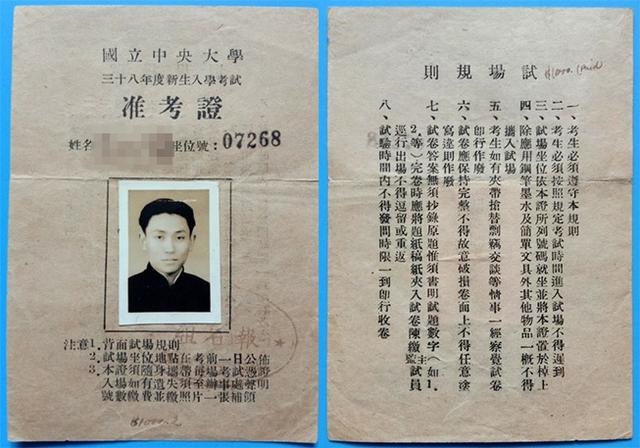 國立中央大學
三十八年度新生入學考試
准考證
姓名
座位號：07268
報名組
注意：1.背面試場規則
2.試場
3.本證
試場規則
一、考生必須遵守本規則
二、考生必須按照規定考試時間進入試場不得遲到
三、試場坐位依本證所列號碼就坐並將本證置於棹上
四、除應用鋼筆墨水及簡單文具外其他物品一概不得
攜入試場
五、考生如有夾帶搶替剽竊交談等情事一經察覺試卷
即行作廢
六、試卷應保持完整不得故意破損卷面上不得任意塗
寫違則作廢
七、試卷答案無須抄錄原題惟須書明試題數字（如1.
2.等）完卷時應將題紙稿紙夾入試卷陳繳主監試員
巡行出場不得逗留或重返
八、試驗時間內不得發問時限一到即行收卷